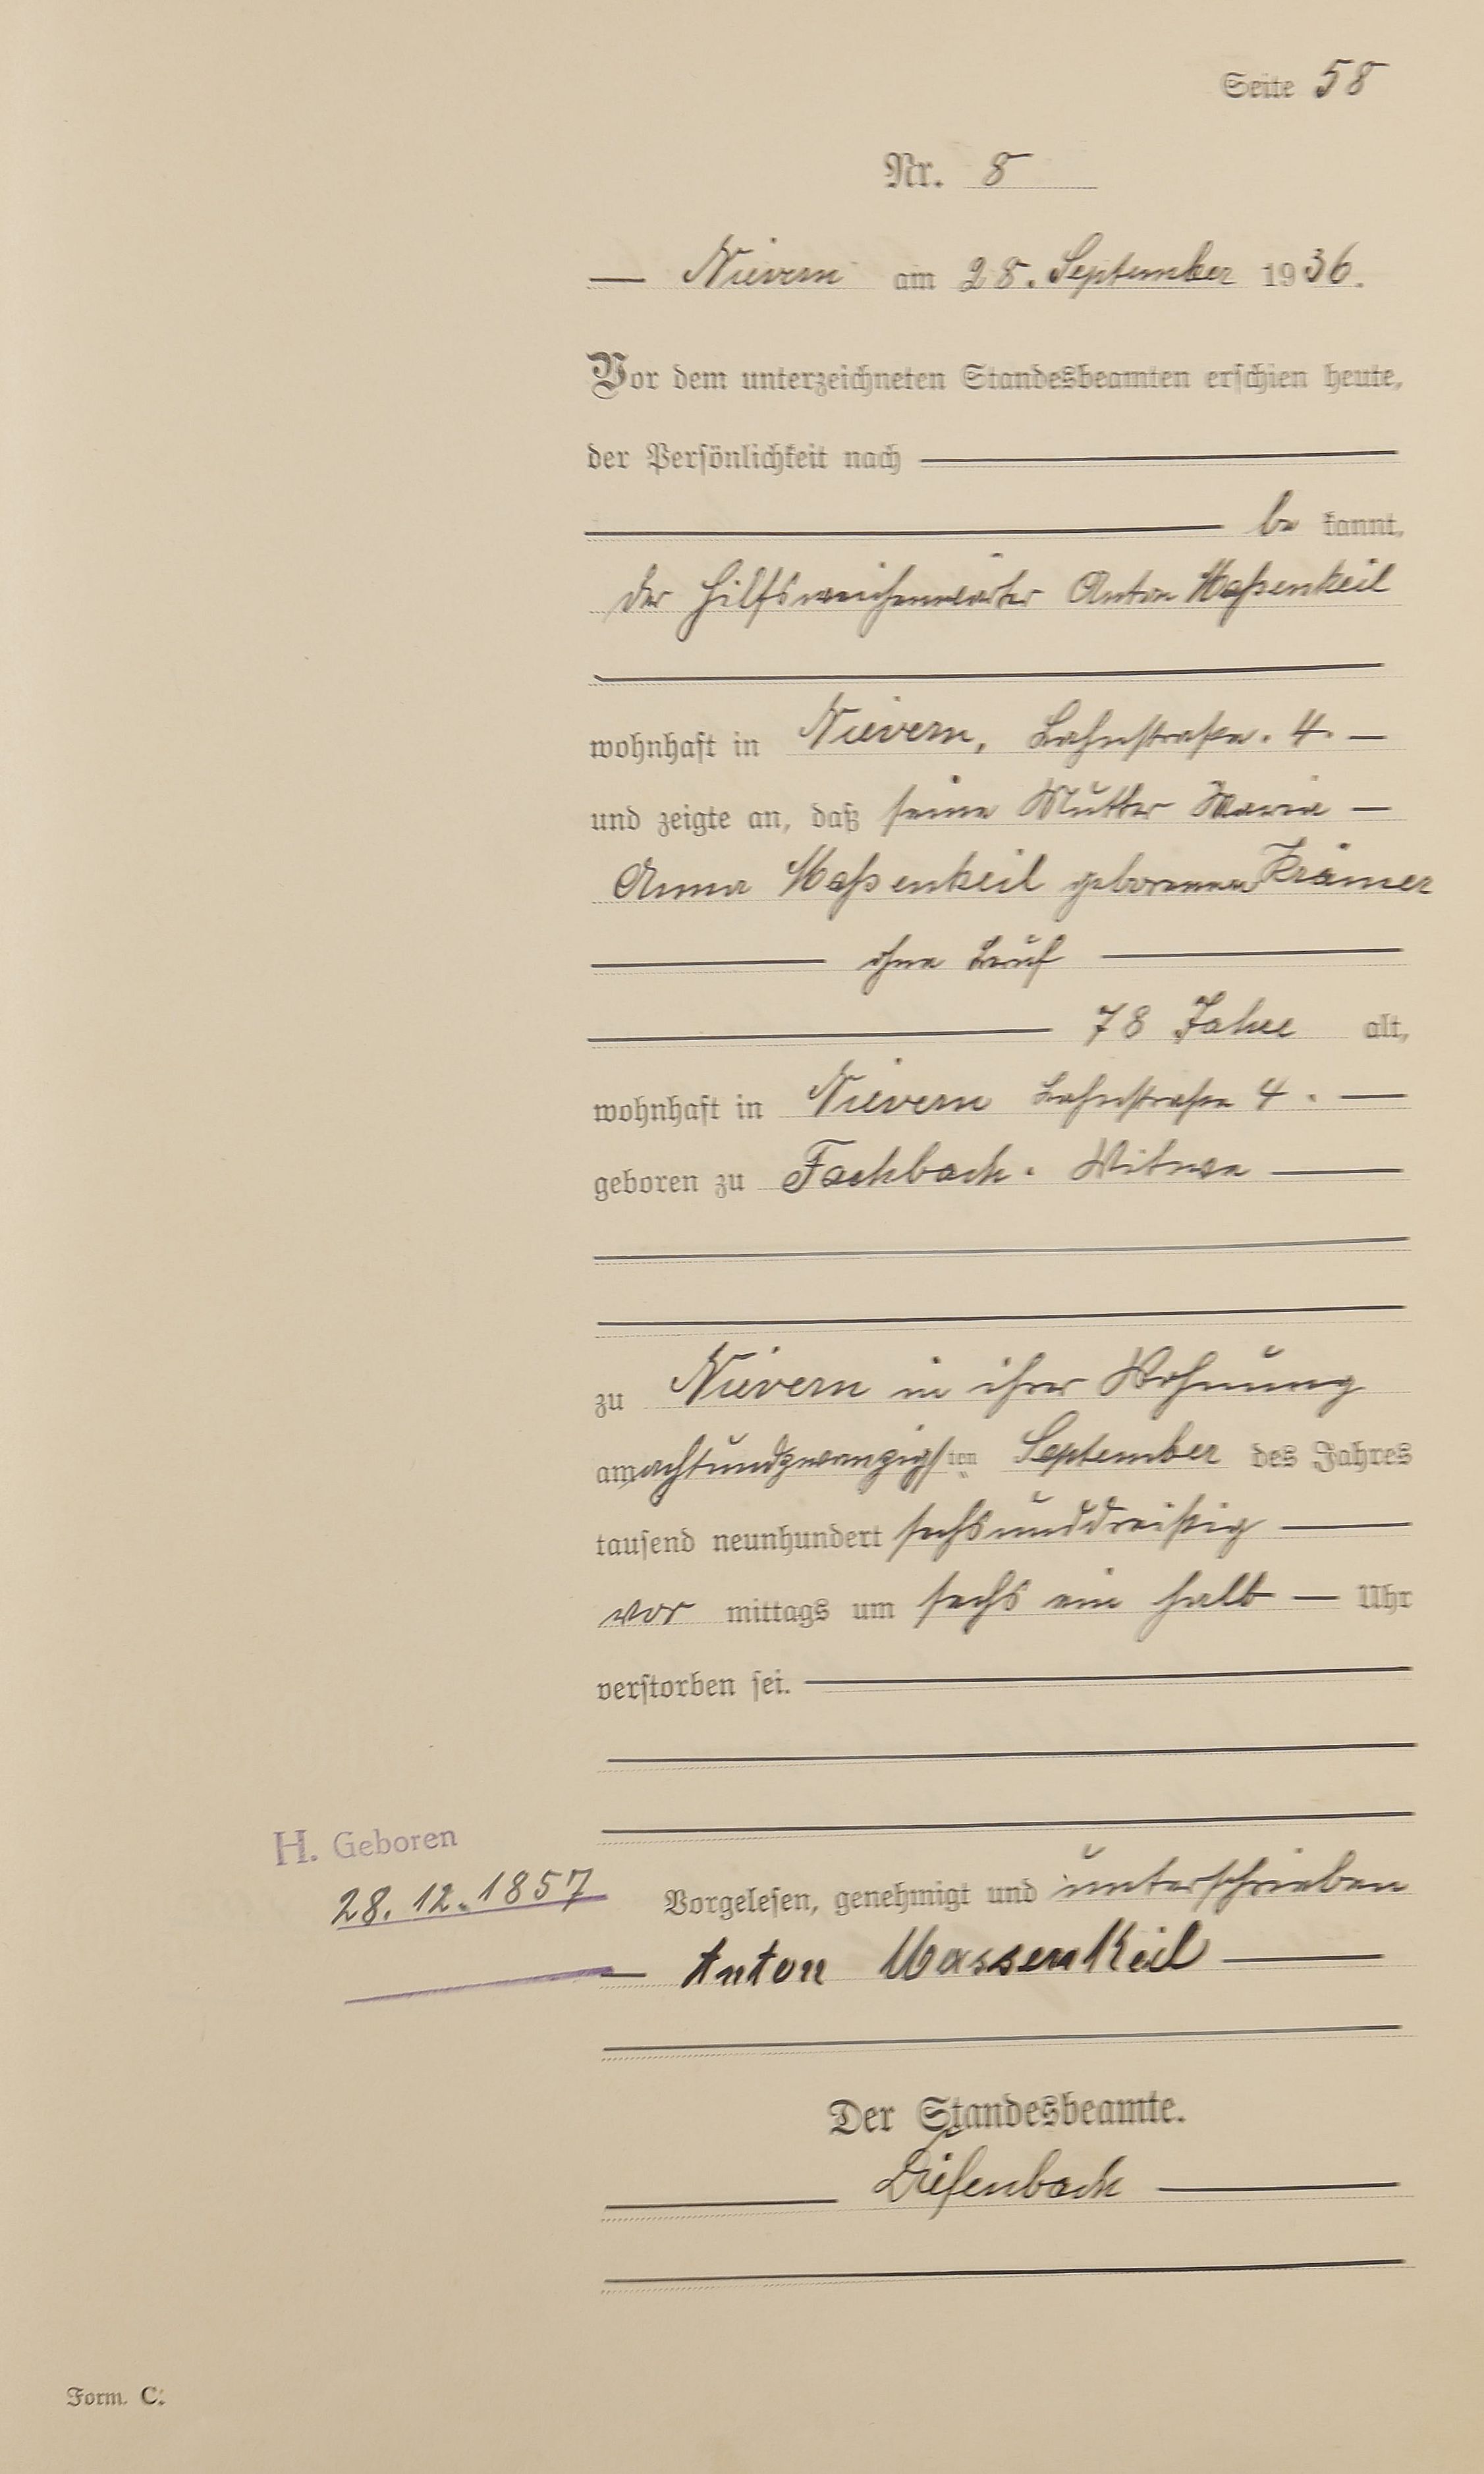 Seite 58
Nr. 8
Nievern am 28. September 1936.
Vor dem unterzeichneten Standesbeamten erschien heute,
der Persönlichkeit nach
be kannt,
der Hilfsweichenwärter Anton Maßenkeil
wohnhaft in Nievern, Bahnstraße. 4.
und zeigte an, daß seine Mutter Maria
Anna Maßenkeil geborenen Krämer
ohne Beruf
78 Jahre alt,
wohnhaft in Nievern Bahnstraße 4.
geboren zu Fachbach. Witwe
zu Nievern in ihrer Wohnung
am achtundzwanzigsten September des Jahres
tausend neunhundert sechsunddreißig
vor mittags um sechs ein halb Uhr
verstorben sei.
H. Geboren
28. 12. 1857
Vorgelesen, genehmigt und unterschrieben
Anton Massenkeil
Der Standesbeamte.
Diefenbach
Form. C.